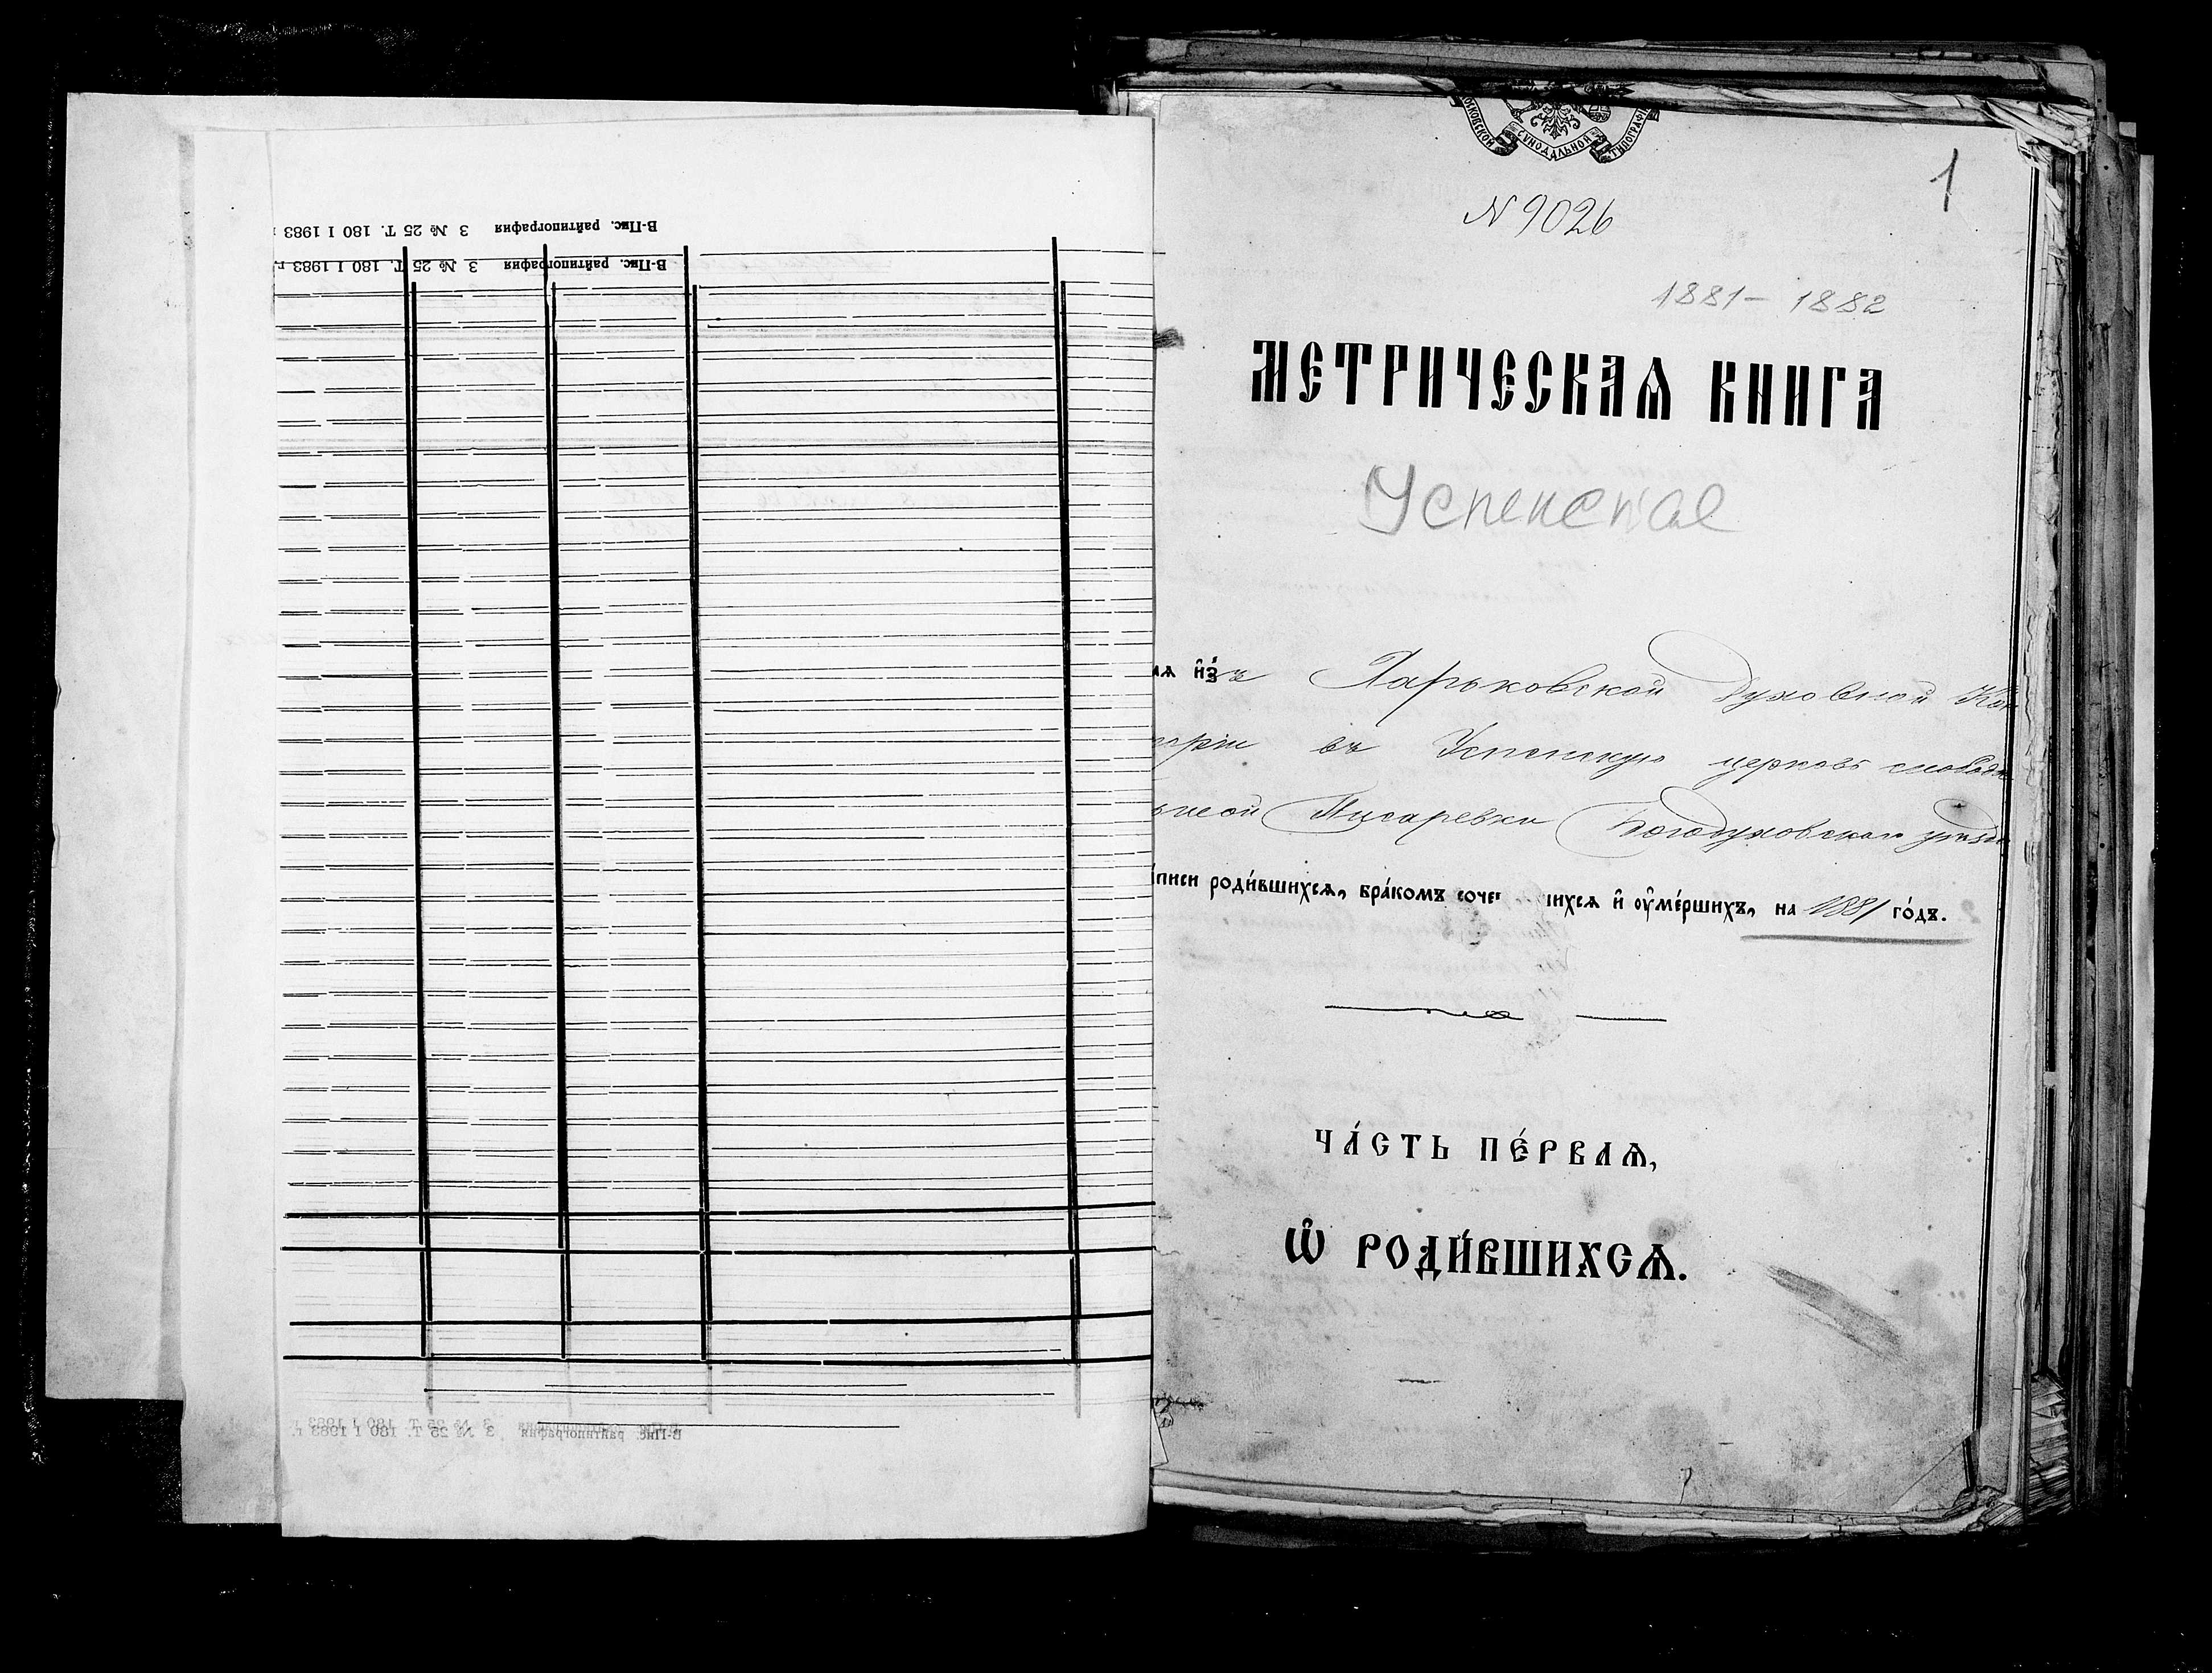 В-Пис. райтипография З № 25 Т. 180 I 1983
В-Пис. райтипография З № 25 Т. 180 I 1983 г.
В-Пис. райтипография З № 25 Т. 180 I 1983
В-Пис. райтипография З № 25 Т. 180 I 1983 г.
МОСКОВСКОЙ СУНОДАЛЬНОЙ ТИПОГРАФІ
1
N 9026
1881 - 1882
МЕТРИЧЕСКАѦ КНИГА
Успенская
аѧ и҆́зъ Харьковской Духовной Кон
торіи въ Успенскую церковь слободы
ьной Писаревки Богодуховскаго уѣзда
писи роди́вшихсѧ, бра́комъ соче ихсѧ и҆ ᲂу҆ме́ршихъ, на 1881 го́дъ.
ЧА́СТЬ ПЕ́РВАѦ,
Ѽ РОДИ́ВШИХСѦ.